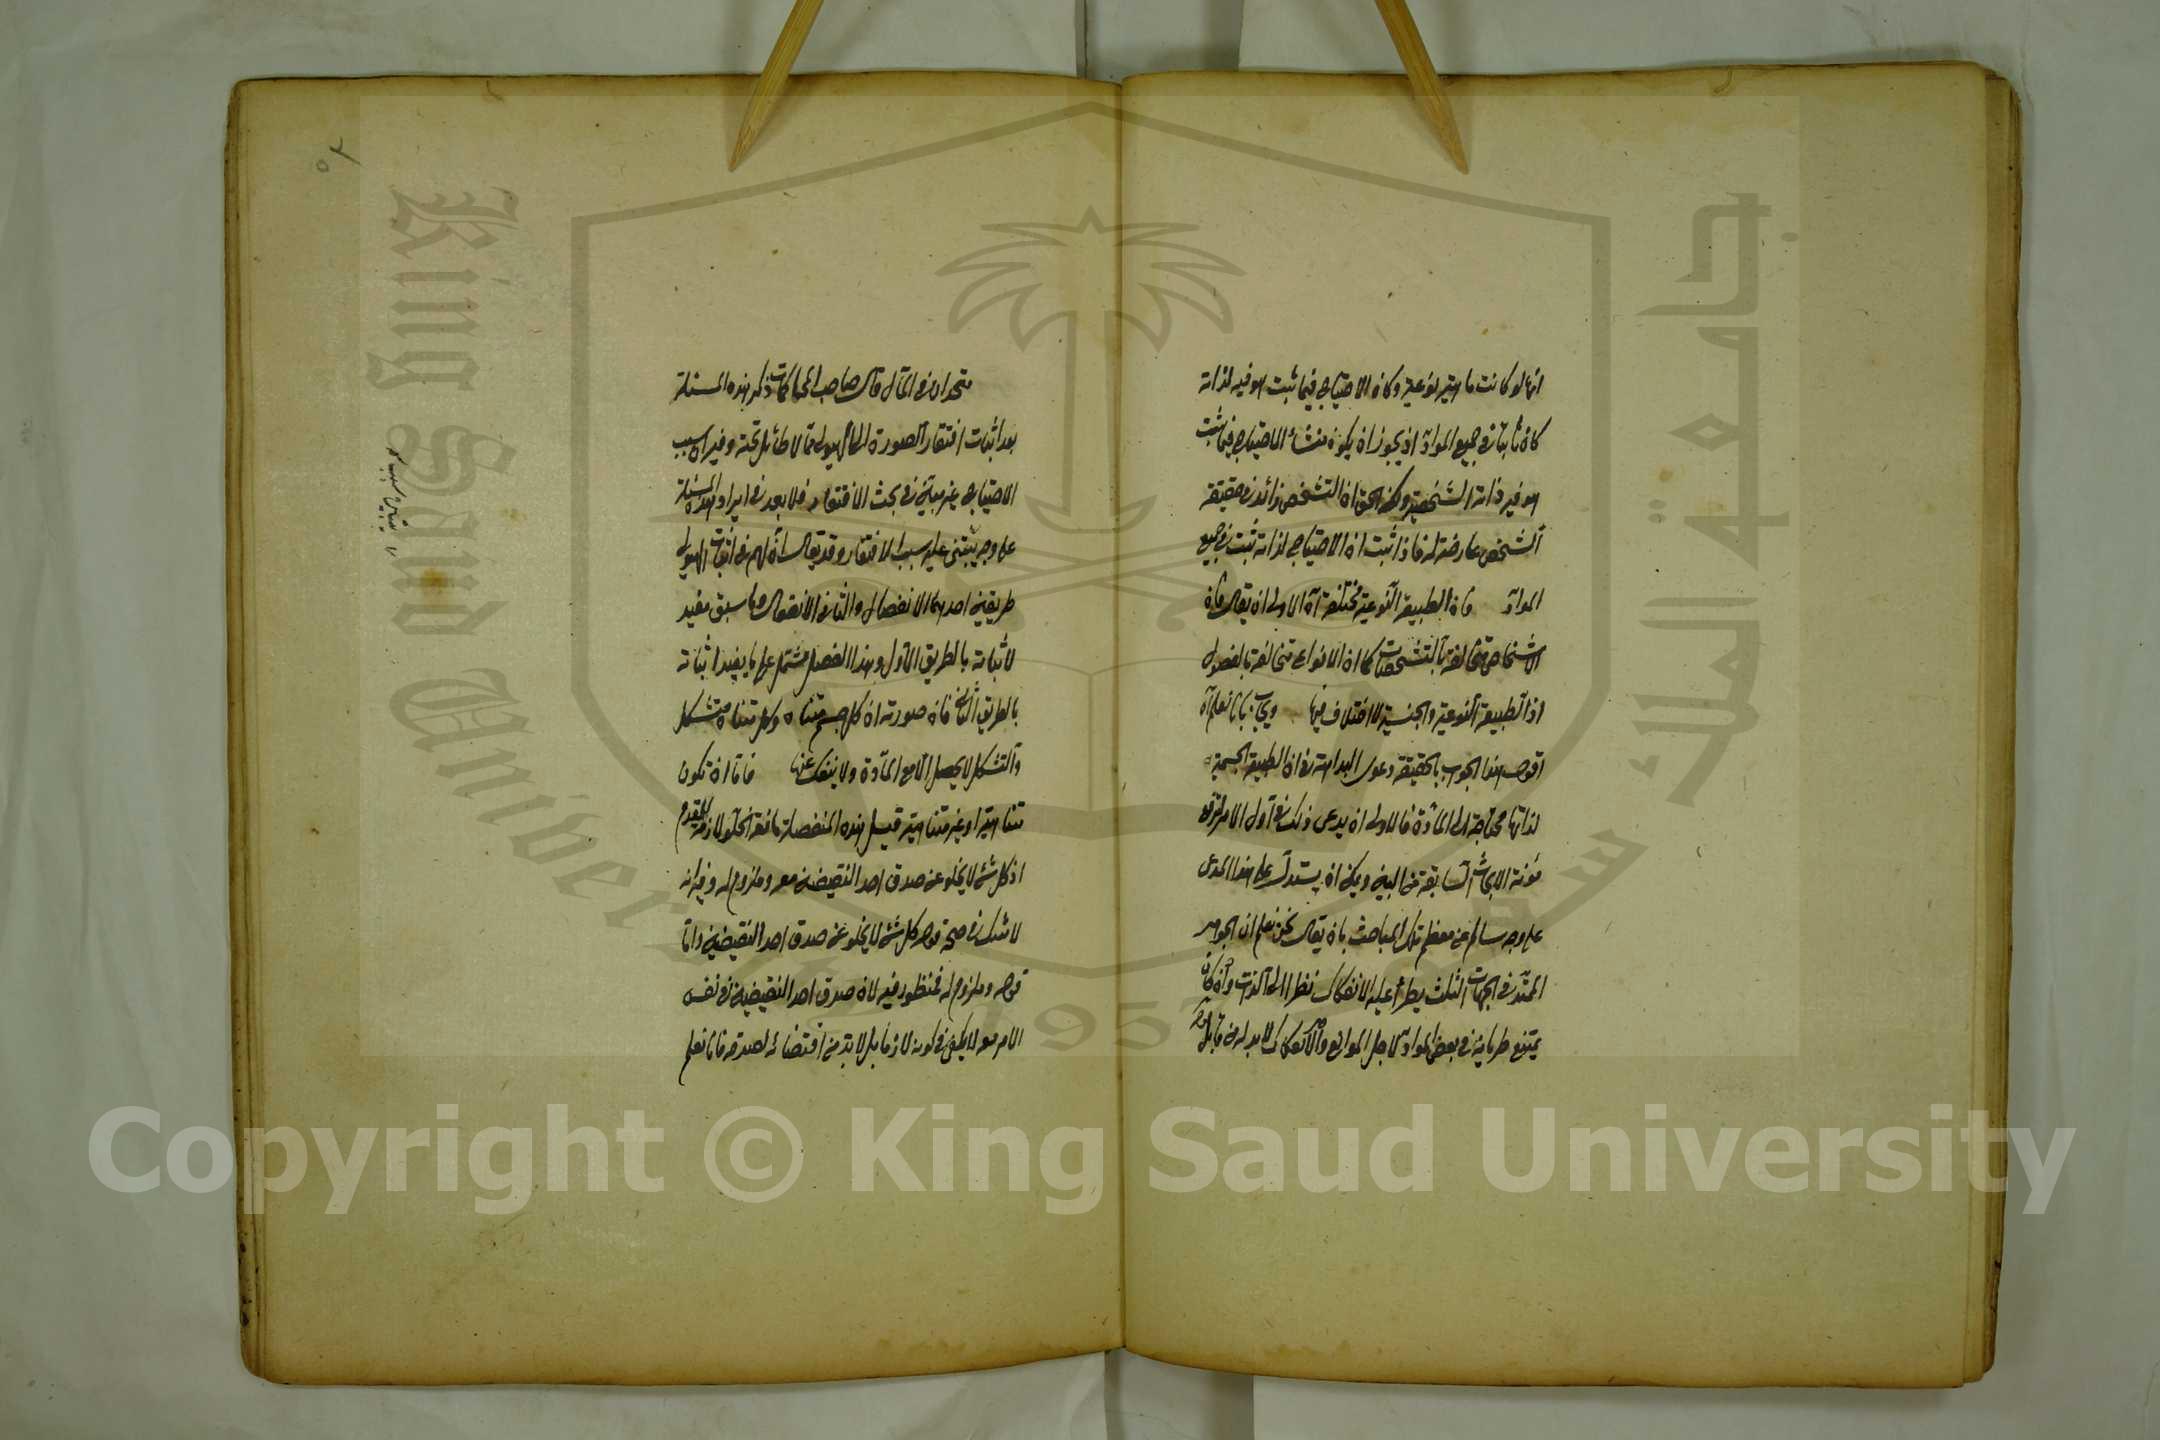 انها لو كانت ماهية نوعية وكان الاحتياج فيما ثبت هو فيه لذاته
كان ثابتا في جميع المواد اذ يجوز ان يكون منشأ الاحتياج فيما ثبت
هو فيه ذاته الشخصية ولكن الحق ان التشخص زائد في حقيقة
الشخص عارضة له فاذا ثبت ان الاحتياج لذاته ثبت في جميع
المواد فان الطبيعة النوعية مختلفة اه الاولى ان يقال فان
الاشخاص متخالفة بالتشخصات كما ان الانواع متخالفة بالفصول
اذ الطبيعة النوعية والجنسية لا اختلاف فيها ويجاب بانا نعلم اه
اقول هذا الجواب بالحقيقة دعوى البداهة في ان الطبيعة الجسمية
لذاتها محتاجة الى المادة فالاولى ان يدعى ذلك في اول الامر لترتفع
مؤنة الابحاث السابقة من البين ويمكن ان يستدل على هذا المدعى
على وجه سالم عن معظم تلك المباحث بان يقال نحن نعلم ان الجوهر
الممتد في الجهات الثلث يطرأ عليه الانفكاك نظرا الى الذات وان كان
يمتنع طريانه في بعض المواد لاجل الموانع والانفكاك لابد له من قابل
متحدان في المآل قال صاحب المحاكمات ذكر هذه المسئلة
بعد اثبات افتقار الصورة الى الهيولى مما لا طائل تحته وفيه ان سبب
الاحتياج غير مبين في بحث الافتقار فلا بعد في ايراد هذه المسئلة
على وجه يبتنى عليه سبب الافتقار وقد يقال انه لهم في اثبات الهيولى
طريقين احدهما الانفصال والثاني الانفعال وما سبق مفيد
لاثباته بالطريق الاول وهذا الفصل مشتمل على ما يفيد اثباته
بالطريق الثاني فان صورته ان كل جسم متناه وكل متناه متشكل
والتشكل لا يحصل الا مع المادة ولا ينفك عنها فاما ان تكون
متناهية او غير متناهية قيل هذه المنفصلة مانعة الخلو لازمة للمقدم
اذ كل شئ لا يخلو عن صدق احد النقيضين معه وملزوم له وفيه انه
لا شك في صحة قوله كل شئ لا يخلو عن صدق احد النقيضين واما
قوله وملزوم له فمنظور فيه لان صدق احد النقيضين في نفس
الامر معه لا يكفي في كونه لازما بل لابد من اقتضائه لصدقه فانا نعلم
Copyright © King Saud University
King Saud University
جامعة الملك سعود
1957